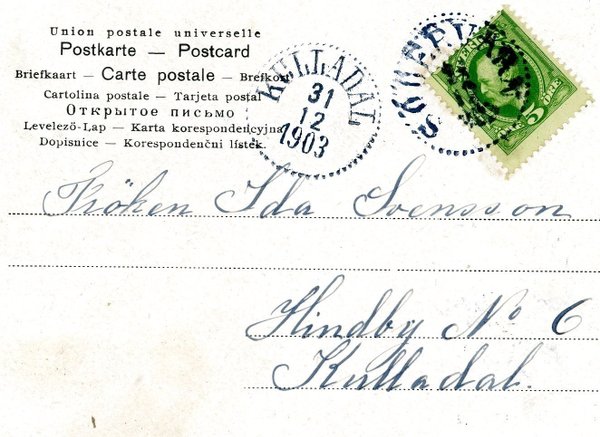 Union postale universelle
Postkarte — Postcard
Briefkaart — Carte postale — Brefkort
Cartolina postale — Tarjeta postal
Открытое письмо
Levelező-Lap — Karta korespondencyjna
Dopisnice — Korespondenčni listek.
KULLADAL
31
12
1903
SÖDERBYKARL
5 ÖRE
Fröken Ida Svensson
Hindby No 6
Kulladal.